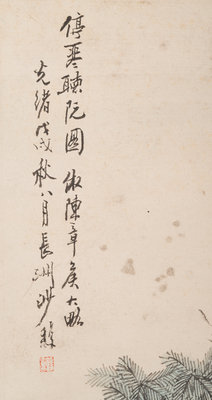 停琴聽阮圖 倣陳章侯大略
光緒戊戌秋八月長洲沙馥